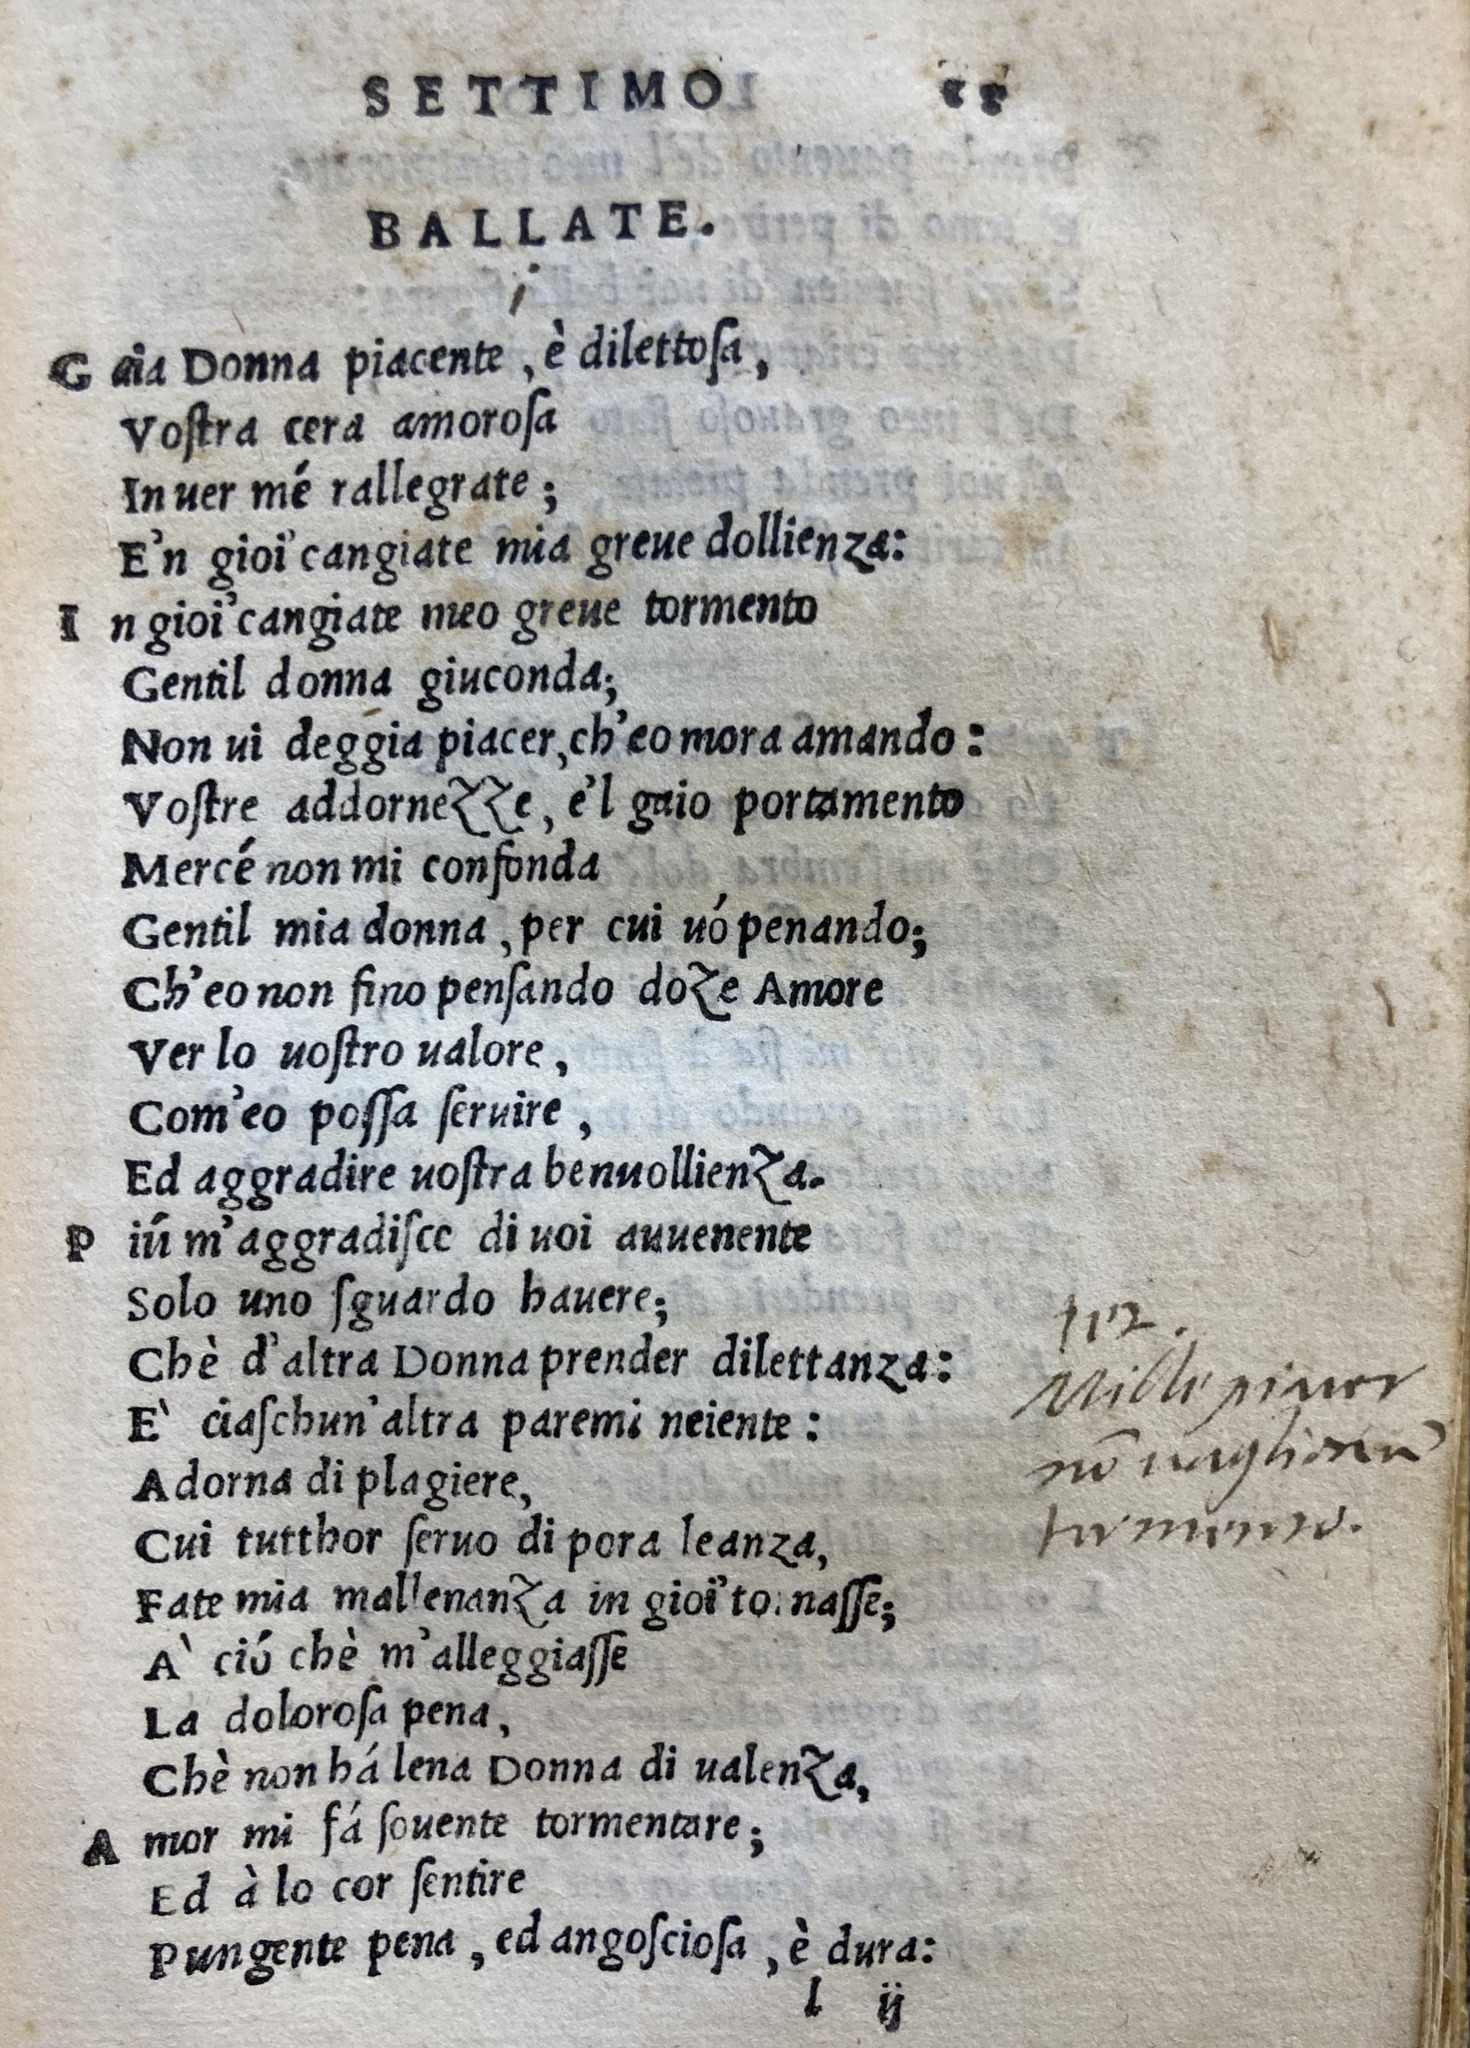 SETTIMO
BALLATE.
G aia Donna piacente, è dilettoſa,
Voſtra cera amoroſa
Inuer mé rallegrate;
E'n gioi' cangiate mia greue dollienza:
I n gioi' cangiate meo greue tormento
Gentil donna giuconda;
Non ui deggia piacer, ch'eo mora amando:
Voſtre addornezze, e'l gaio portamento
Mercé non mi confonda
Gentil mia donna, per cui uó penando;
Ch'eo non fino penſando doze Amore
Ver lo uoſtro ualore,
Com'eo poſſa ſeruire,
Ed aggradire uoſtra benuollienza.
P iú m'aggradiſce di uoi auuenente
Solo uno ſguardo hauere;
Chè d'altra Donna prender dilettanza:
E' ciaſchun'altra paremi neiente:
Adorna di plagiere,
Cui tutthor ſeruo di pora leanza,
Fate mia mallenanza in gioi' tornaſſe;
A' ció chè m'alleggiaſſe
La doloroſa pena,
Chè non há lena Donna di ualenza,
A mor mi fá ſouente tormentare;
Ed à lo cor ſentire
Pungente pena, ed angoſcioſa, è dura:
l ij
Mille piacer
nō uagliono ū
tormento.